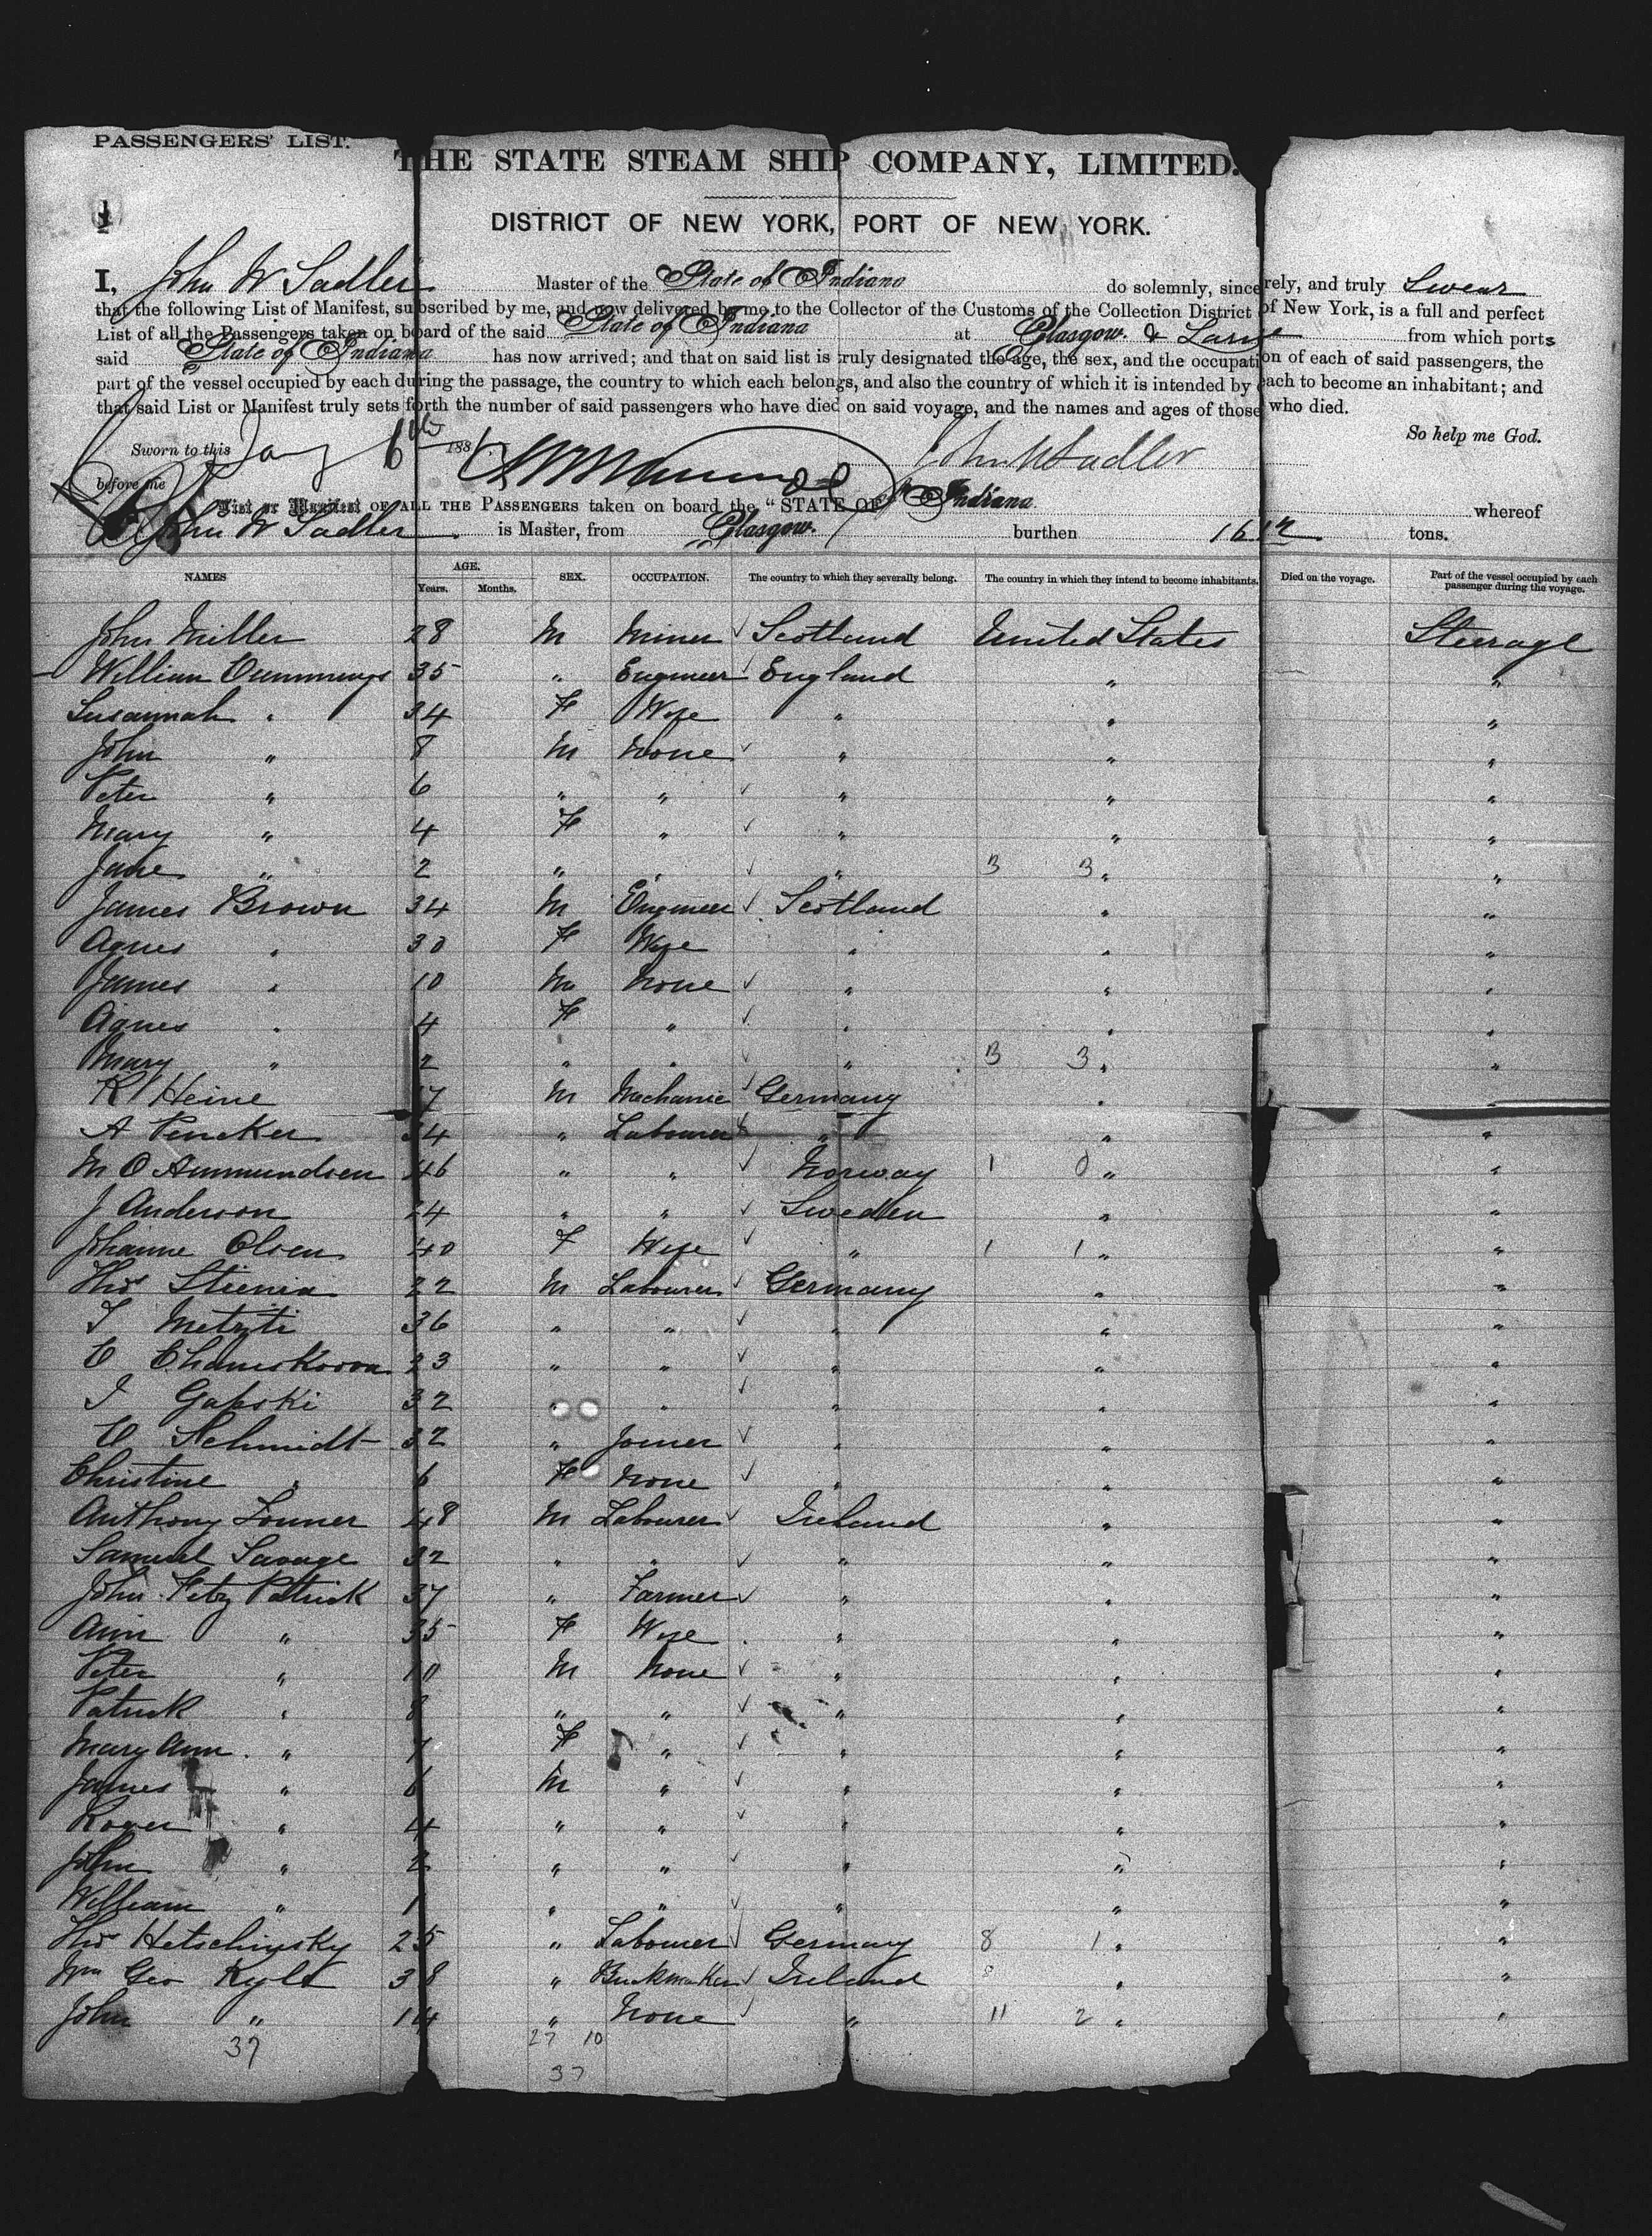 PASSENGERS' LIST.
1
THE STATE STEAM SHIP COMPANY, LIMITED.
DISTRICT OF NEW YORK, PORT OF NEW YORK.
I, John W Sadler Master of the State of Indiana do solemnly, sincerely, and truly Swear
that the following List of Manifest, subscribed by me, and now delivered by me to the Collector of the Customs of the Collection District of New York, is a full and perfect
List of all the Passengers taken on board of the said State of Indiana at Glasgow. & Larne from which ports
said State of Indiana has now arrived; and that on said list is truly designated the age, the sex, and the occupation of each of said passengers, the
part of the vessel occupied by each during the passage, the country to which each belongs, and also the country of which it is intended by each to become an inhabitant; and
that said List or Manifest truly sets forth the number of said passengers who have died on said voyage, and the names and ages of those who died.
So help me God.
Sworn to this Jany 6th 188 John W Sadler
before me
List or Manifest OF ALL THE PASSENGERS taken on board the "STATE OF Indiana whereof
John W Sadler is Master, from Glasgow. burthen tons.
NAMES AGE. Years. Months. SEX. OCCUPATION. The country to which they severally belong. The country in which they intend to become inhabitants. Died on the voyage. Part of the vessel occupied by each passenger during the voyage.
John Miller 28 M Miner Scotland United States Steerage
William Cummings 35 " Engineer England " "
Susannah " 34 F Wife " " "
John " 8 M None " " "
Peter " 6 " " " " "
Mary " 4 F " " " "
Jane " 2 " " " 3 3 " "
James Brown 34 M Engineer Scotland " "
Agnes " 30 F Wife " " "
James " 10 M None " " "
Agnes " 4 F " " " "
Mary " 2 " " " 3 3 " "
R Heine 17 M Mechanic Germany " "
A Pencker 34 " Labourer " " "
M O Ammundsen 46 " " Norway 1 0 " "
J Anderson 24 " " Sweden " "
Johanne Olsen 40 F Wife " 1 1 " "
Thos 22 M Labourer Germany " "
36 " " " " "
23 " " " " "
Gapski 32 " " " " "
Schmidt 32 " Joiner " " "
Christine " 6 F None " " "
Anthony 48 M Labourer Ireland " "
Samuel Savage 32 " " " " "
John Fitz Patrick 37 " Farmer " " "
Ann " 35 F Wife " " "
Peter " 10 M None " " "
Patrick " 8 " " " " "
Mary Ann " 7 F " " " "
James " 6 M " " " "
Roger " 4 " " " " "
John " 2 " " " " "
William " 1 " " " " "
Thos Hetschinsky 25 " Labourer Germany 8 1 " "
Wm Geo Kyle 38 " Brickmaker Ireland 8 " "
John " 14 " None " 11 2 " "
37 27 10
37